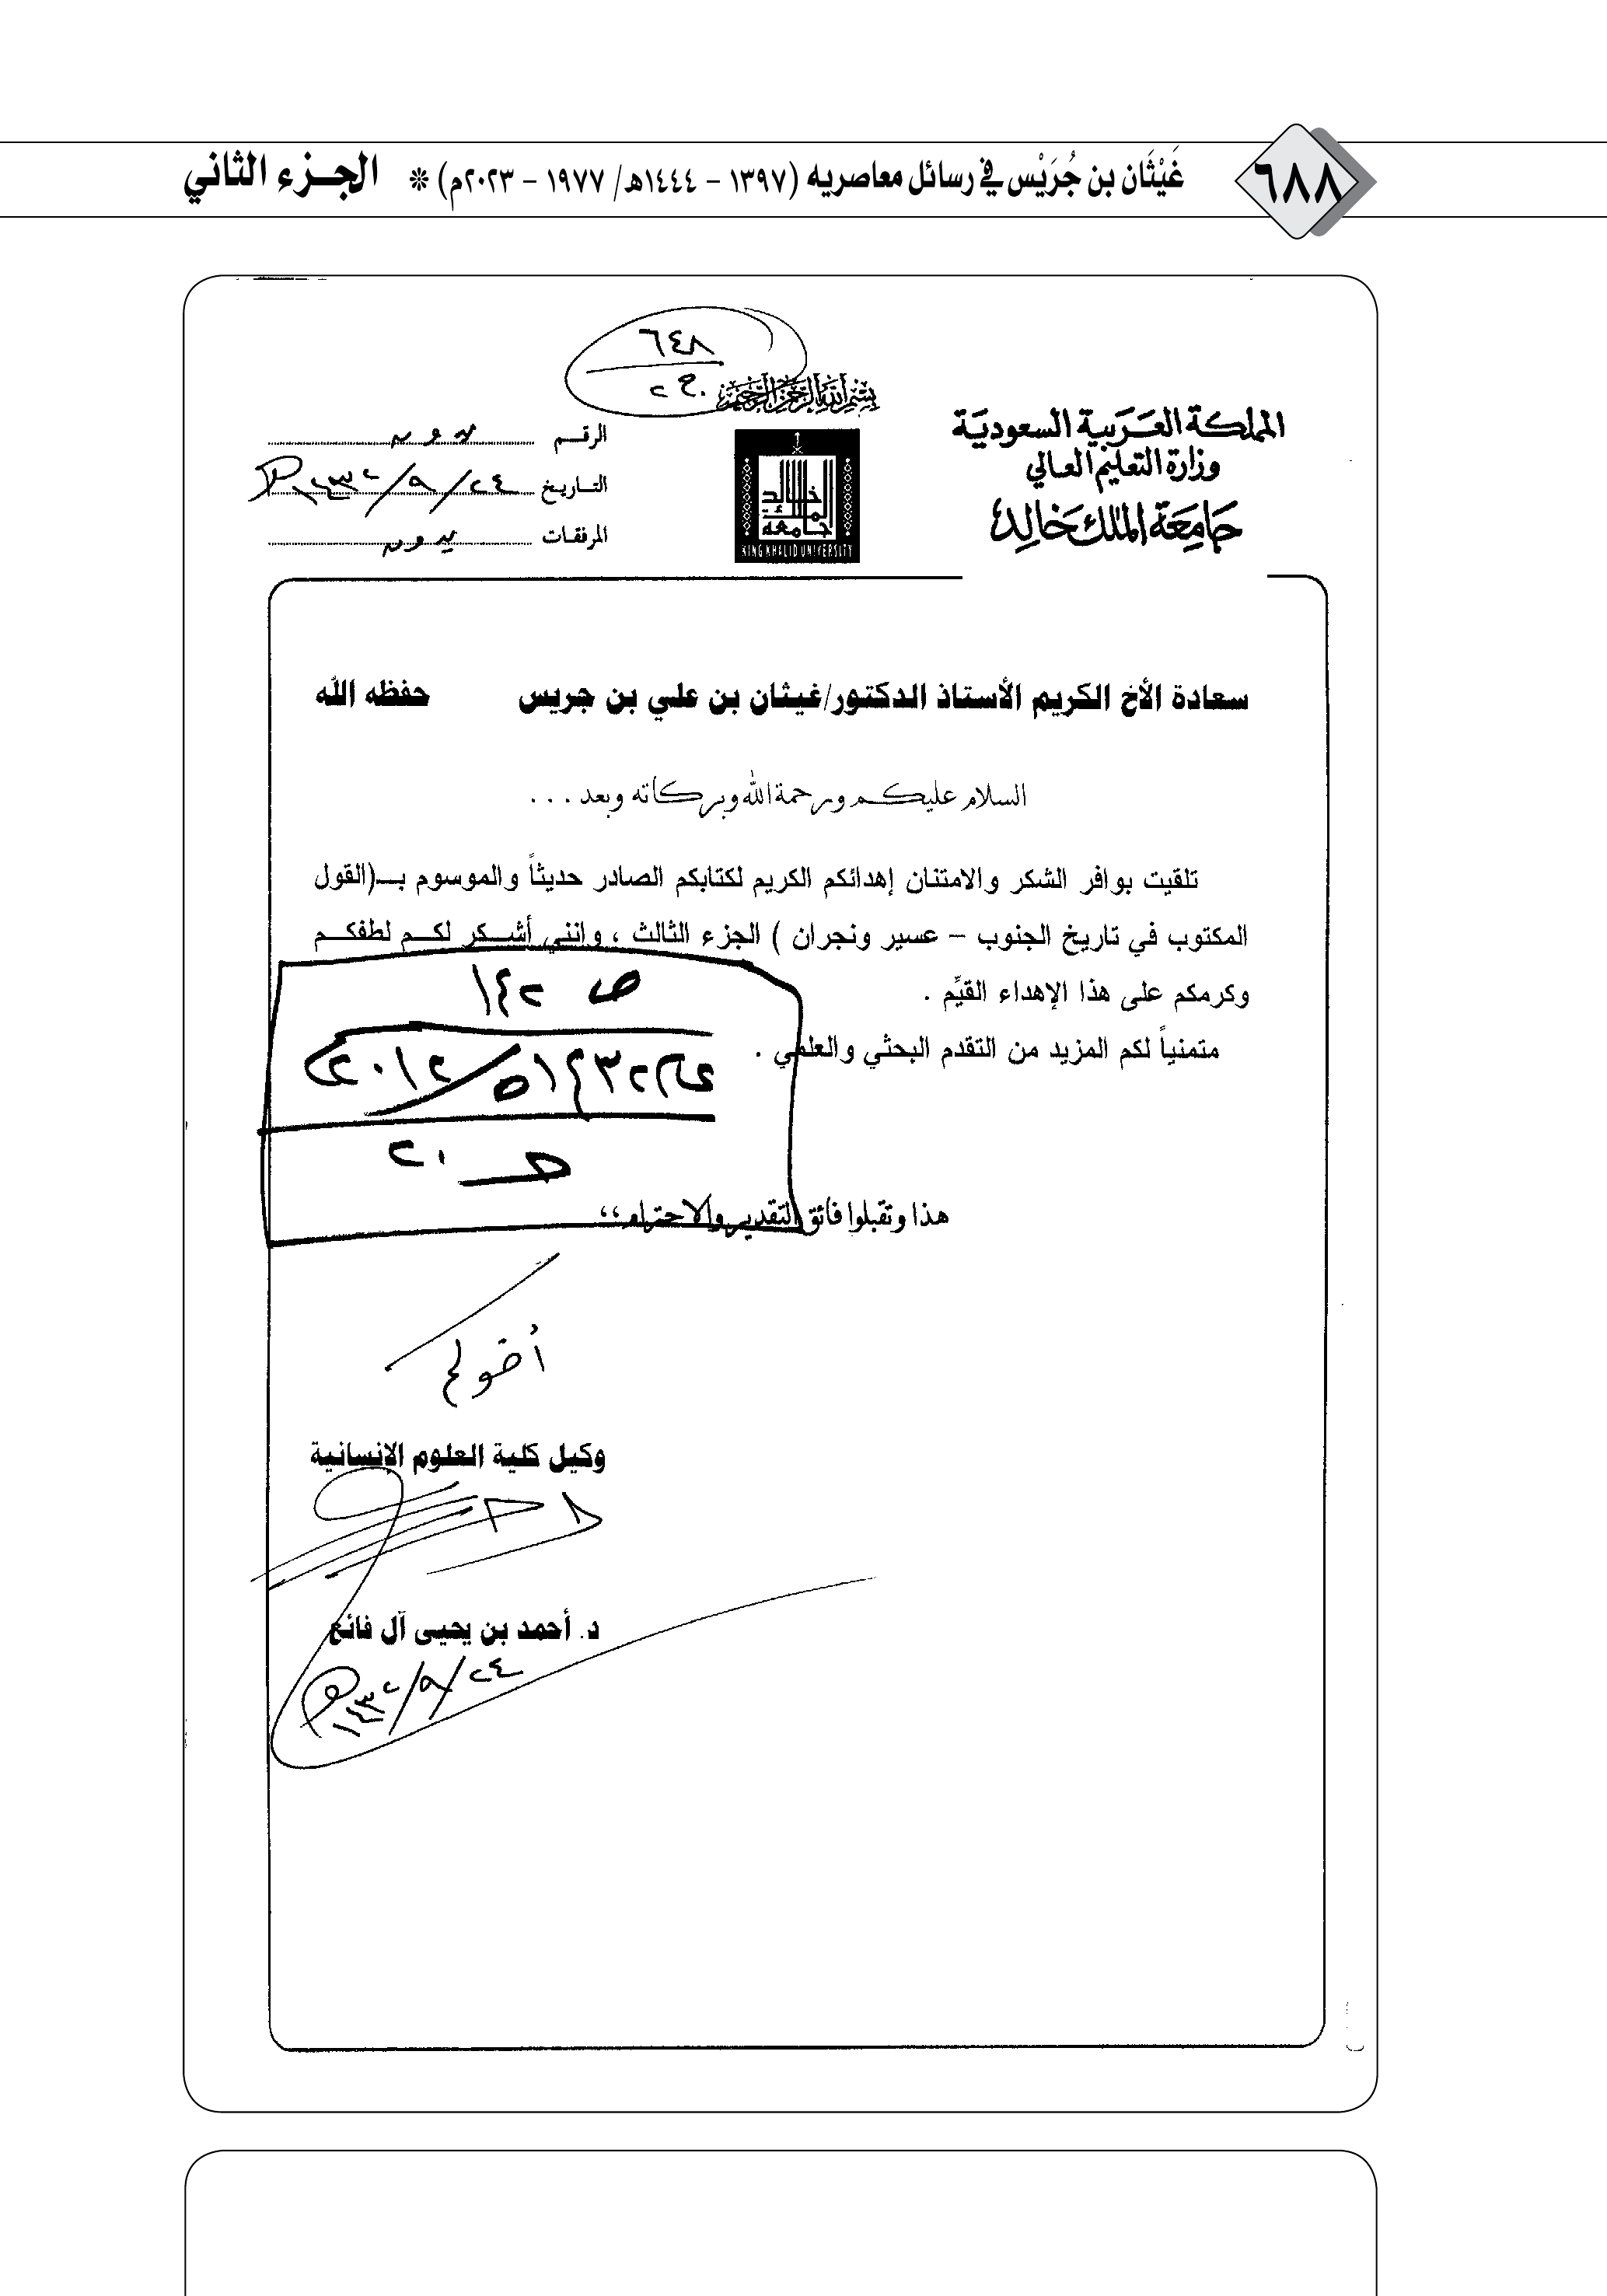 ٦٨٨
غَيْثَان بن جُرَيْس في رسائل معاصريه (١٣٩٧ - ١٤٤٤هـ/ ١٩٧٧ - ٢٠٢٣م) * الجزء الثاني
٦٤٨
ج ٢٠
بسم الله الرحمن الرحيم
المملكة العربية السعودية
وزارة التعليم العالي
جامعة الملك خالد
جامعة الملك خالد
KING KHALID UNIVERSITY
الرقم بدون
التاريخ ٢٤/٩/١٤٣٢هـ
المرفقات بدون
سعادة الأخ الكريم الأستاذ الدكتور/غيثان بن علي بن جريس حفظه الله
السلام عليكم ورحمة الله وبركاته وبعد . . .
تلقيت بوافر الشكر والامتنان إهدائكم الكريم لكتابكم الصادر حديثاً والموسوم بـ(القول
المكتوب في تاريخ الجنوب – عسير ونجران ) الجزء الثالث ، وإنني أشكر لكم لطفكم
وكرمكم على هذا الإهداء القيِّم .
متمنياً لكم المزيد من التقدم البحثي والعلمي .
ص ١٤٢
١٤٣٢هـ/٢٠١٢م
ح ٢٠
هذا وتقبلوا فائق التقدير والاحترام،،
أخوكم
وكيل كلية العلوم الإنسانية
د. أحمد بن يحيى آل فائع
٢٤/٩/١٤٣٢هـ